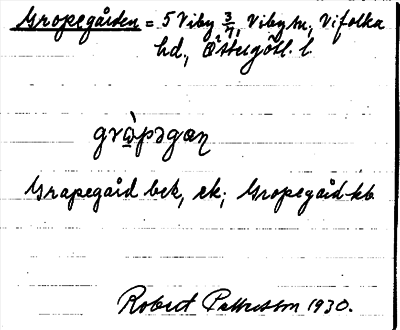 Gropegården = 5 Viby 3/7, Viby sn, Vifolka
hd, Östergötl. l.
grɷ̀pəgaɳ
Grapegård bek, ek; Gropegård kb
Robert Pettersson 1930.